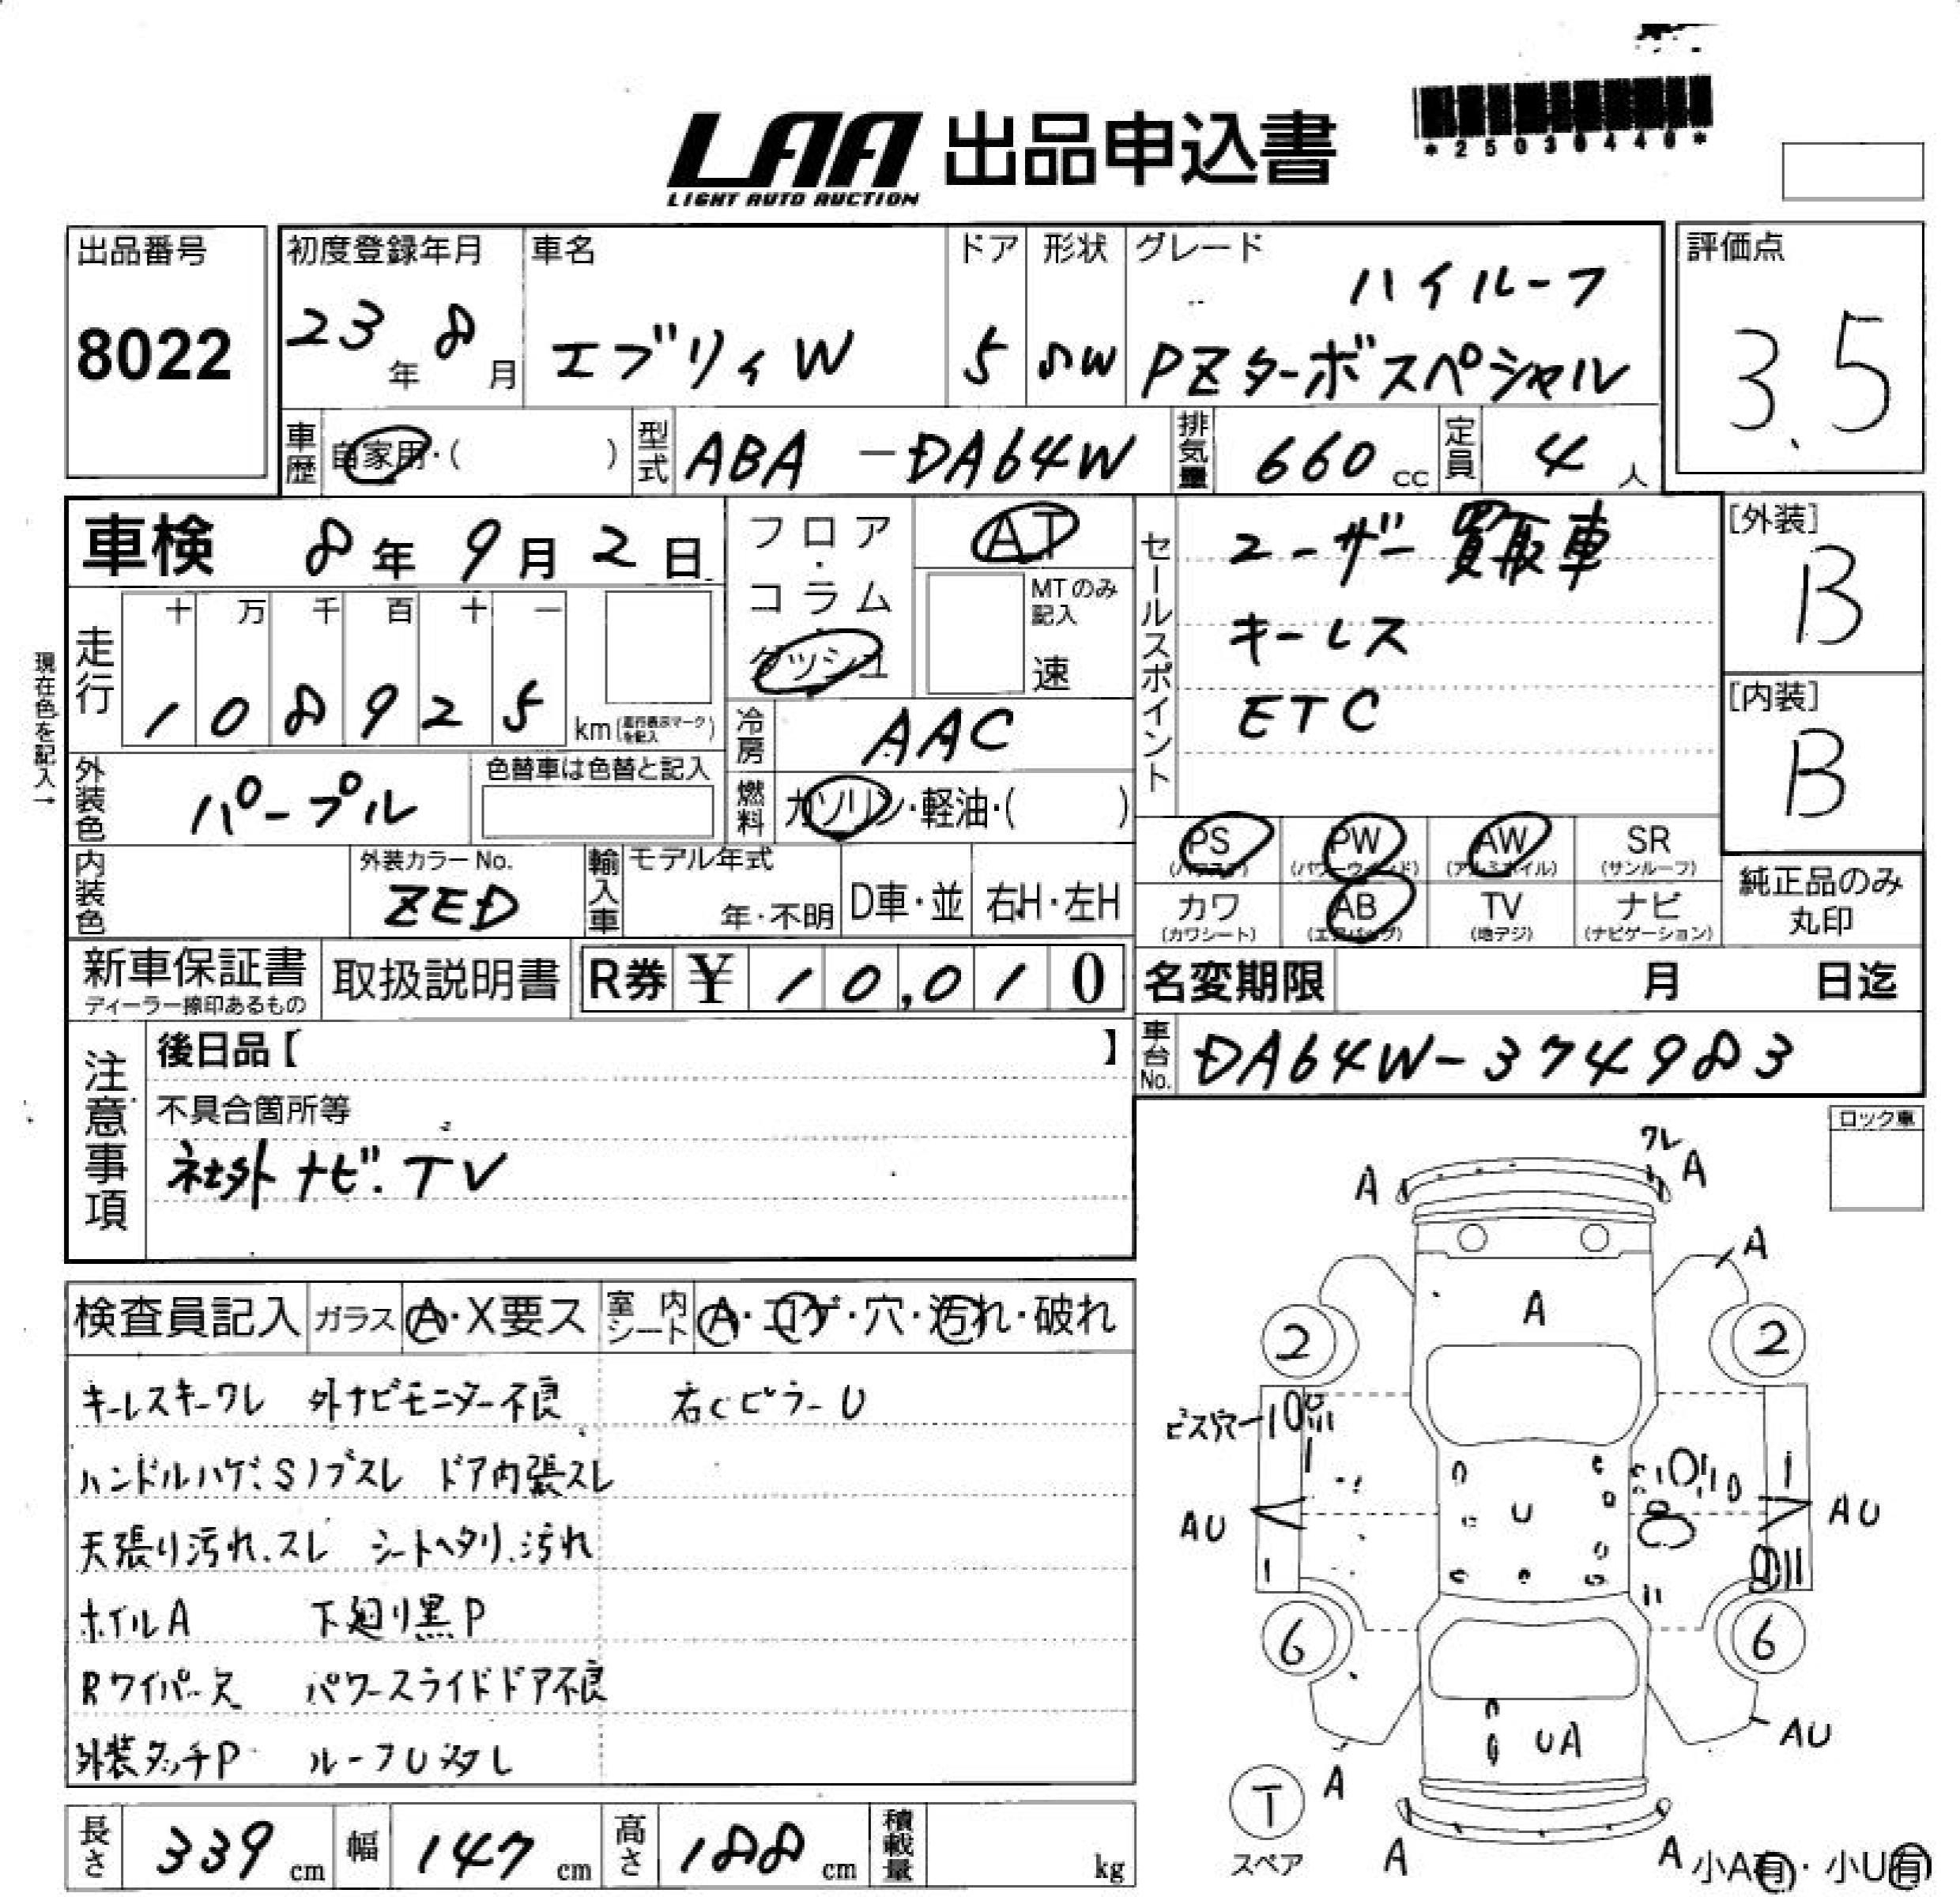 LAA 出品申込書
LIGHT AUTO AUCTION
*25030440*
出品番号
8022
初度登録年月
23年 8月
車名
エブリィW
ドア
5
形状
5W
グレード
ハイルーフ
PZターボスペシャル
評価点
3.5
車歴 自家用・( )
型式 ABA-DA64W
排気量 660 cc
定員 4 人
車検 8年 9月 2日
フロア・コラム・ダッシュ
AT
MTのみ記入
速
セールスポイント
ユーザー買取車
キーレス
ETC
[外装]
B
[内装]
B
現在色を記入→
走行
十 万 千 百 十 一
1 0 8 9 2 5 km(走行表示マークを記入)
冷房 AAC
外装色 パープル
色替車は色替と記入
燃料 ガソリン・軽油・( )
PS (パワステ)
PW (パワーウインド)
AW (アルミホイル)
SR (サンルーフ)
カワ (カワシート)
AB (エアバッグ)
TV (地デジ)
ナビ (ナビゲーション)
純正品のみ
丸印
内装色
外装カラーNo.
ZED
輸入車
モデル年式
年・不明
D車・並
右H・左H
新車保証書
ディーラー捺印あるもの
取扱説明書
R券 ¥ 10,010
名変期限 月 日迄
車台No. DA64W-374983
注意事項
後日品【 】
不具合箇所等
社外ナビ.TV
ロック車
検査員記入
ガラス A・X要ス
室内シート A・コゲ・穴・汚れ・破れ
キーレスキーワレ 外ナビモニター不良 右CピラーU
ハンドルハゲ、Sノブスレ ドア内張スレ
天張り汚れ、スレ シートヘタリ、汚れ
ホイルA 下廻り黒P
Rワイパー欠 パワースライドドア不良
外装タッチP ルーフU
ワレ
A
A
A
A
2
2
ビス穴
AU
U
AU
6
6
AU
UA
A
T
スペア
A
A
小A有・小U有
長さ 339 cm
幅 147 cm
高さ 188 cm
積載量 kg